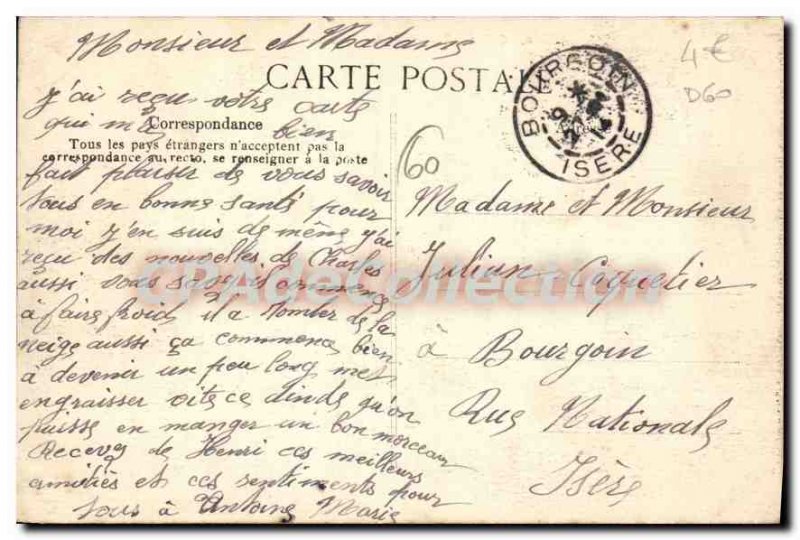 Monsieur et Madame
CARTE POSTALE
4€
D60
BOURGOIN
ISÈRE
j'ai reçu votre carte
qui m'a bien
Correspondance
Tous les pays étrangers n'acceptent pas la
correspondance au recto, se renseigner à la poste
60
fait plaisir de vous savoir
tous en bonne santé pour
moi j'en suis de même j'ai
reçu des nouvelles de Charles
aussi vous savez il commence
à faire froid il a tomber de la
neige aussi ça commence bien
à devenir un peu long met
engraisser vite ce dinde qu'on
puisse en manger un bon morceau
Recevez de Henri ces meilleurs
amitiés et ces sentiments pour
tous à Antoine Marie
Madame et Monsieur
Julian Coquetier
à Bourgoin
Rue Nationale
Isère
CPAdeCollection